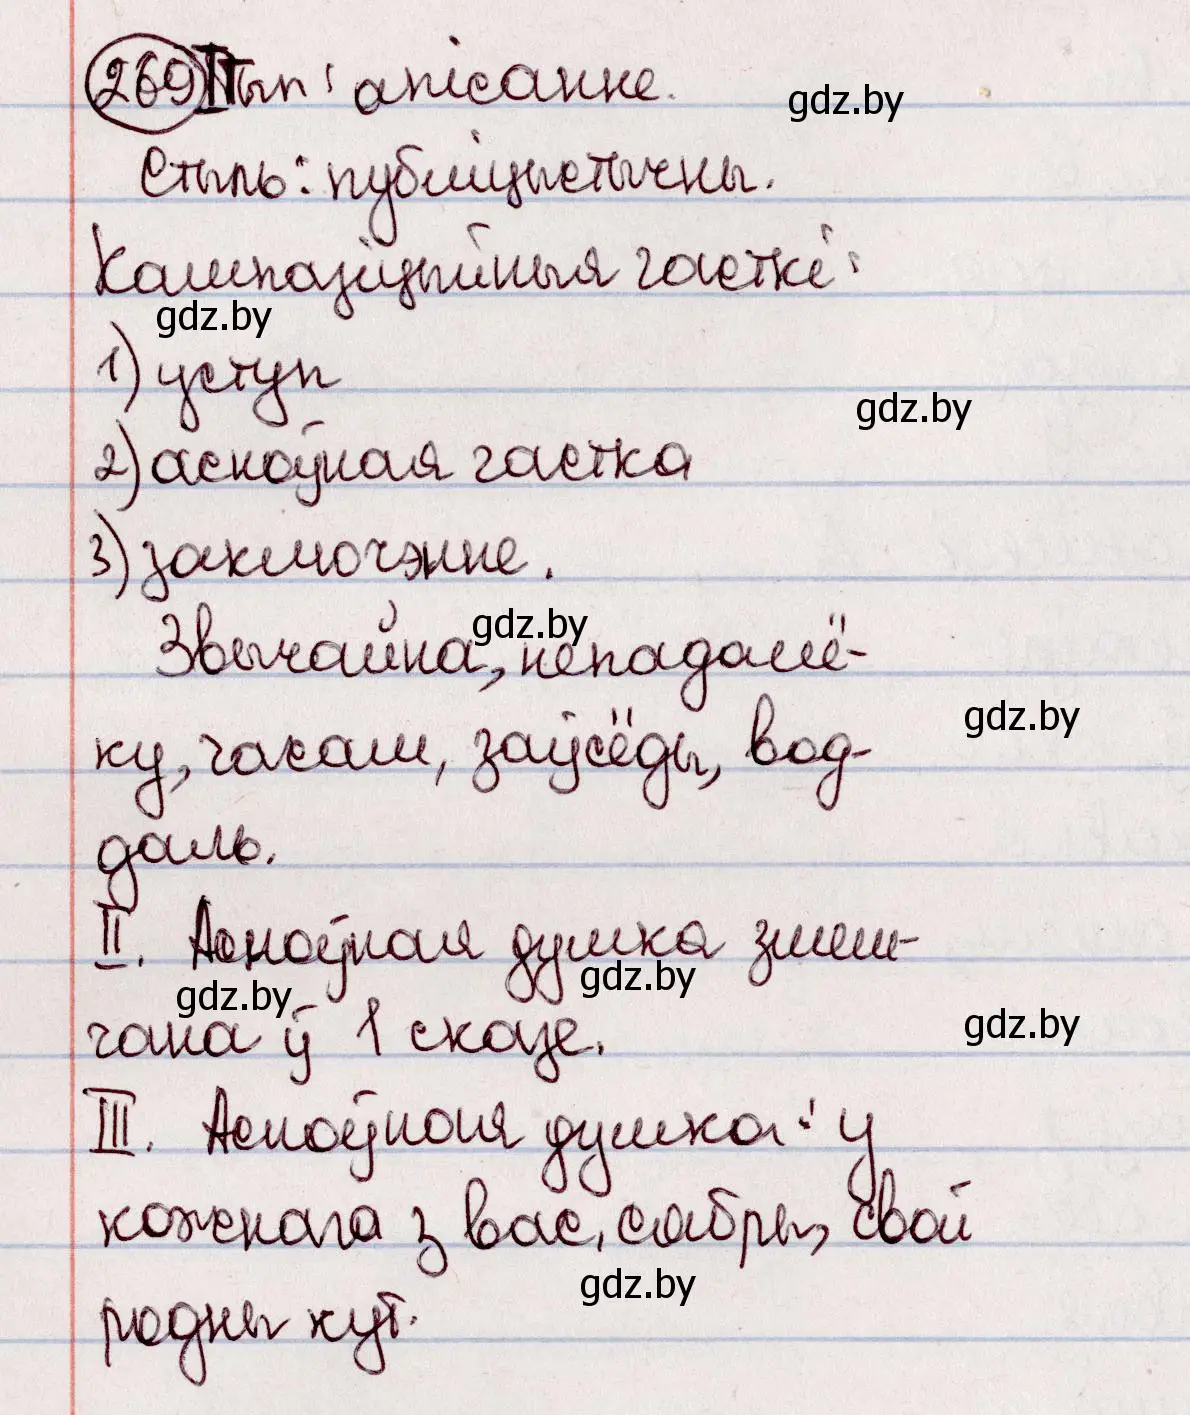 269 I Тып: апісанне.
gdz.by
Стыль: публіцыстычны.
Кампазіцыйныя часткі:
gdz.by
1) уступ
gdz.by
2) асноўная частка
3) заключэнне.
gdz.by
Звычайна, непадалё-
gdz.by
ку, часам, заўсёды, вод-
даль.
II. Асноўная думка змеш-
gdz.by gdz.by
чана ў 1 сказе.
gdz.by
III. Асноўная думка: у
кожнага з вас, сябры, свой
gdz.by
родны кут.